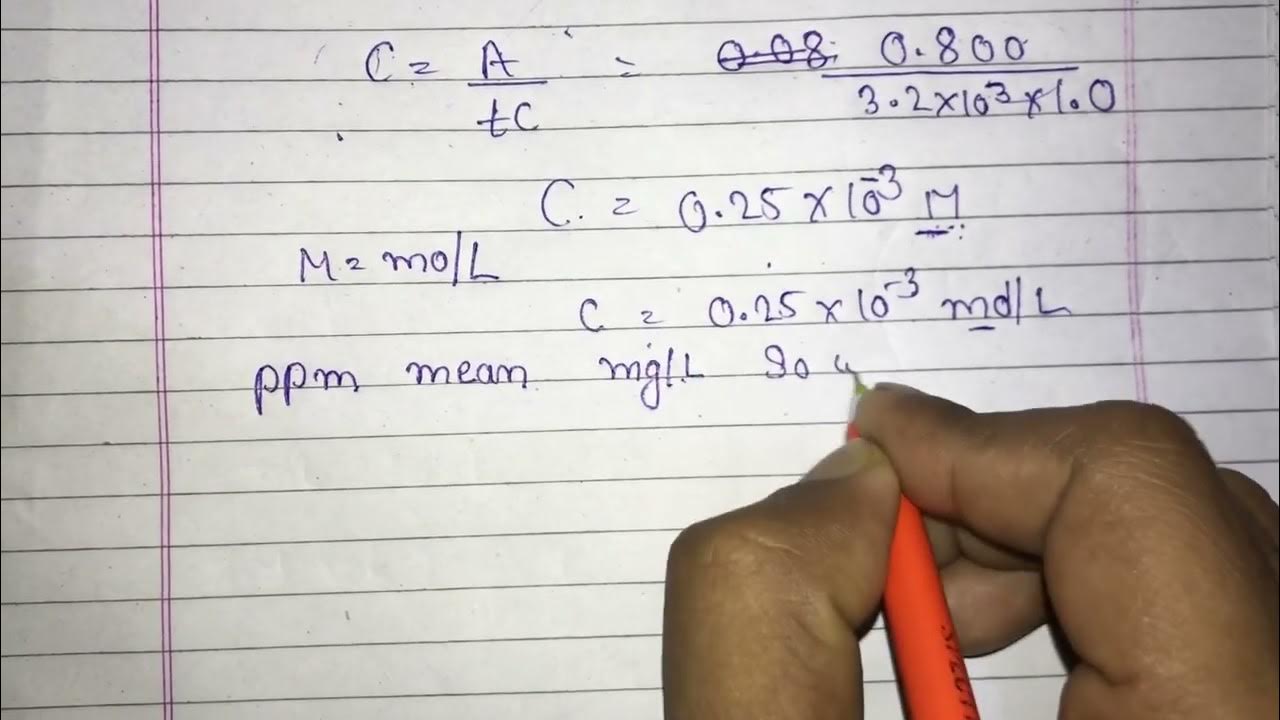 C = A / tC = 0.08 0.800 / 3.2×10³×1.0
C. = 0.25×10⁻³ M
M = mo/L
C = 0.25×10⁻³ mol/L
ppm mean mg/L So